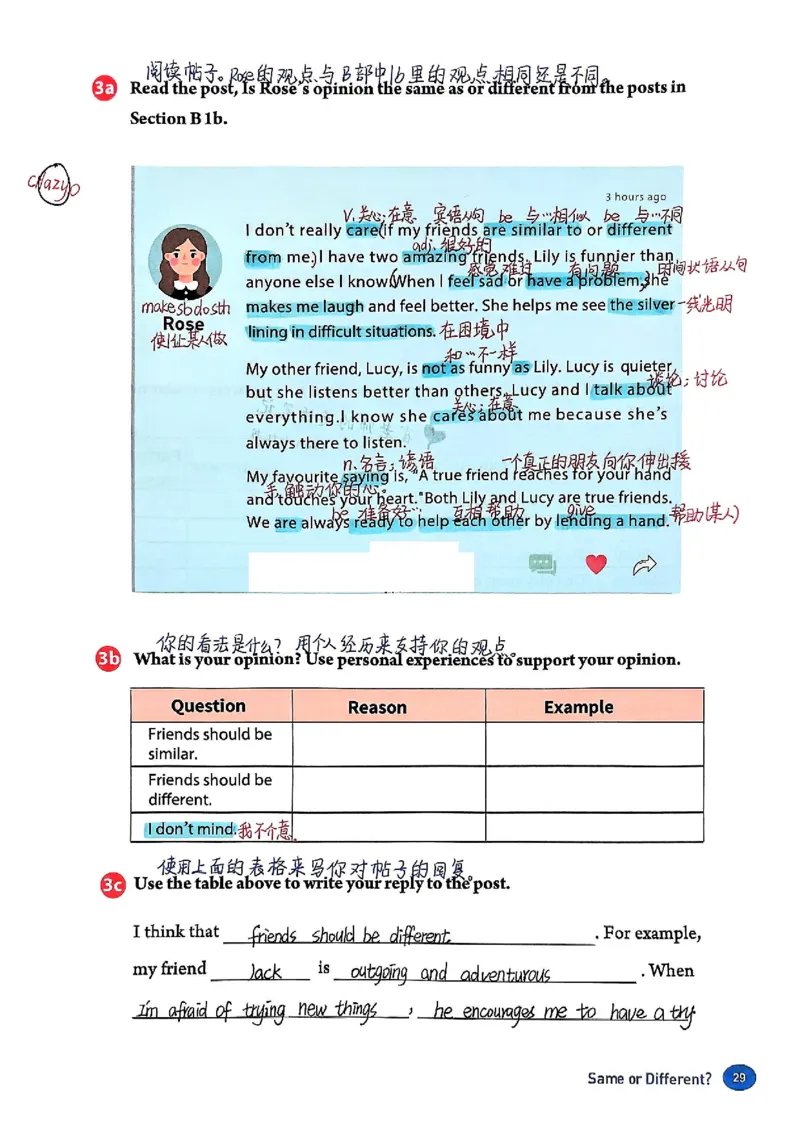 阅读帖子。Rose的观点与B部中1b里的观点相同还是不同。
3a Read the post, Is Rose's opinion the same as or different from the posts in
Section B 1b.
crazy
3 hours ago
v.关心;在意 宾语从句 be 与…相似 be 与…不同
I don't really care(if my friends are similar to or different
adj.很好的
from me.)I have two amazing friends. Lily is funnier than
感觉难过 有问题 时间状语从句
anyone else I know.(When I feel sad or have a problem,)she
make sb do sth
makes me laugh and feel better. She helps me see the silver 一线光明
Rose
使/让某人做
lining in difficult situations. 在困境中
和…不一样
My other friend, Lucy, is not as funny as Lily. Lucy is quieter,
but she listens better than others. Lucy and I talk about 谈论;讨论
关心;在意
everything.I know she cares about me because she's
always there to listen.
n.名言;谚语 一个真正的朋友向你伸出援
My favourite saying is, "A true friend reaches for your hand
手,触动你的心。
and touches your heart."Both Lily and Lucy are true friends.
be 准备好… 互相帮助 give
We are always ready to help each other by lending a hand. 帮助(某人)
你的看法是什么?用个人经历来支持你的观点。
3b What is your opinion? Use personal experiences to support your opinion.
Question Reason Example
Friends should be
similar.
Friends should be
different.
I don't mind. 我不介意.
使用上面的表格来写你对帖子的回复。
3c Use the table above to write your reply to the post.
I think that friends should be different. . For example,
my friend Jack is outgoing and adventurous . When
I'm afraid of trying new things , he encourages me to have a try.
Same or Different? 29